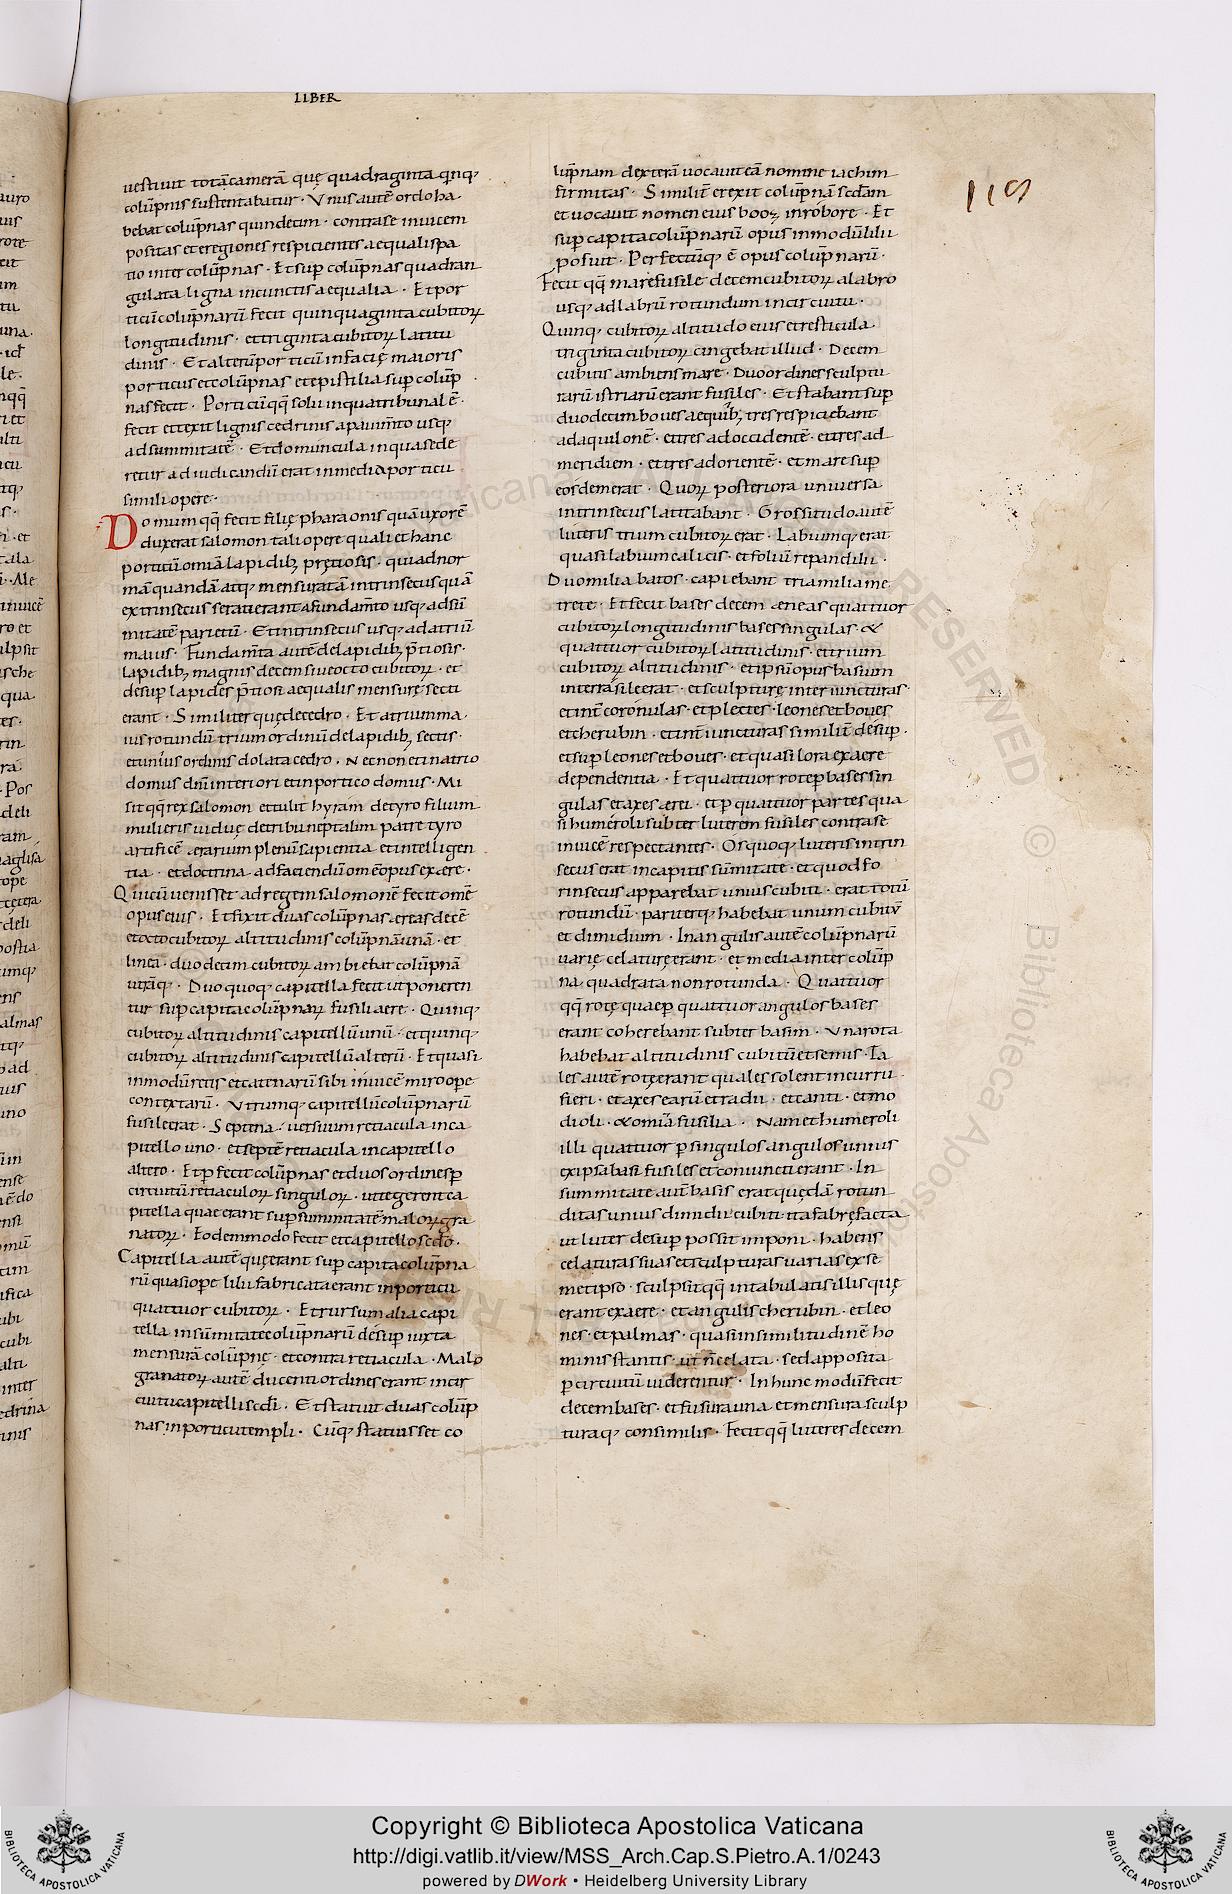 LIBER
119
uestiuit totā camerā quę quadraginta qnq;
colūpnis sustentabatur · Vnus autē ordo ha
bebat colūpnas quindecim · contra se inuicem
positas et e regione se respicientes aequali spa
tio inter colūpnas · Et sup colūpnas quadran
gulata ligna in cunctis aequalia · Et por
ticū colūpnarū fecit quinquaginta cubitoꝝ
longitudinis · et triginta cubitoꝝ latitu
dinis · Et alterū porticū in facię maioris
porticus et colūpnas et epistilia sup colūp
nas fecit · Porticū qq̄ solii in qua tribunal ē ·
fecit et texit lignis cedrinis a pauim̄to usq;
ad sūmitatē · Et domuncula in qua sede
retur ad iudicandū erat in media porticu
simili opere ·
Domum qq̄ fecit filię pharaonis quā uxorē
duxerat salomon tali opere quali et hanc
porticū omīa lapidib; pretiosis · qui ad nor
mā quandā atq; mensurā tā intrinsecus quā
extrinsecus serati erant a fundam̄to usq; ad sū
mitatē parietū · Et intrinsecus usq; ad atriū
maius · Fundam̄ta autē de lapidib; p̄tiosis ·
lapidib; magnis decem siue octo cubitoꝝ · et
desup lapides p̄tiosi aequalis mensurę secti
erant · Similiter quę de cedro · Et atrium ma
ius rotundū trium ordinū de lapidib; sectis ·
et unius ordinis dolata cedro · Necnon et in atrio
domus dn̄i interiori et in portico domus · Mi
sit qq̄ rex salomon et tulit hyram de tyro filium
mulieris uiduę de tribu neptalim patre tyro
artificē aerarium plenū sapientia et intelligen
tia · et doctrina ad faciendū omē opus ex aere ·
Qui cū uenisset ad regem salomonē fecit omē
opus eius · Et fixit duas colūpnas ereas decē
et octo cubitoꝝ altitudinis colūpnā unā · et
linea · duodecim cubitoꝝ ambiebat colūpnā
utrāq; · Duo quoq; capitella fecit ut poneren
tur sup capita colūpnaꝝ fusili aere · Quinq;
cubitoꝝ altitudinis capitellū unū · et quinq;
cubitoꝝ altitudinis capitellū alterū · Et quasi
in modū retis et catenarū sibi inuicē miro ope
contextarū · Vtrumq; capitellū colūpnarū
fusile erat · Septena · uersuum retiacula in ca
pitello uno · et septē retiacula in capitello
altero · Et pfecit colūpnas et duos ordines p
circuitū retiaculoꝝ singuloꝝ · ut tegerent ca
pitella quae erant sup summitatē maloꝝ gra
natoꝝ · Eodem modo fecit et capitello scdo ·
Capitella autē quę erant sup capita colūpna
rū quasi ope lilii fabricata erant in porticu
quattuor cubitoꝝ · Et rursum alia capi
tella in sūmitate colūpnarū desup iuxta
mensurā colūpnę · et contra retiacula · Malo
granatoꝝ autē ducenti ordines erant in cir
cuitu capitelli scdi · Et statuit duas colūp
nas in porticu templi · Cūq; statuisset co
lūpnam dexterā uocauit eā nomine iachim
firmitas · Similit̄ erexit colūpnā scdam
et uocauit nomen eius booz in robore · Et
sup capita colūpnarū opus in modū lilii
posuit · Perfectūq; ē opus colūpnarū ·
Fecit qq̄ mare fusile decem cubitoꝝ a labro
usq; ad labrū rotundum in circuitu ·
Quinq; cubitoꝝ altitudo eius et resticula
triginta cubitoꝝ cingebat illud · Decem
cubitis ambiens mare · Duo ordines sculptu
rarū istriarū erant fusiles · Et stabant sup
duodecim boues a equib; tres respiciebant
ad aquilonē · et tres ad occidentē · et tres ad
meridiem · et tres ad orientē · et mare sup
eos demerat · Quoꝝ posteriora uniuersa
intrinsecus latitabant · Grossitudo autē
luteris trium cubitoꝝ erat · Labiumq; erat
quasi labium calicis · et foliū repandi lilii ·
Duo milia batos · capiebant tria milia me
trete · Et fecit bases decem aeneas quattuor
cubitoꝝ longitudinis bases singulas · &
quattuor cubitoꝝ latitudinis · et trium
cubitoꝝ altitudinis · et ipsū opus basium
interrasile erat · et sculpturę inter iuncturas ·
et int̄ coronulas · et plectes · leones et boues
et cherubin · et int̄ iuncturas similit̄ desup ·
et sup leones et boues · et quasi lora ex aere
dependentia · Et quattuor rote p bases sin
gulas et axes aerei · et p quattuor partes qua
si humeroli subter luterem fusiles contra se
inuicē respectantes · Os quoq; luteris intrin
secus erat in capitis sūmitate · et quod fo
rinsecus apparebat unius cubiti · erat totū
rotundū · pariterq; habebat unum cubitū
et dimidium · In angulis autē colūpnarū
uarię celaturę erant · et media inter colūp
na · quadrata non rotunda · Quattuor
qq̄ rotę quae p quattuor angulos bases
erant coherebant subter basim · Vna rota
habebat altitudinis cubitū et semis · Ta
les autē rote erant quales solent in curru
fieri · et axes earū et radii · et canti · et mo
dioli · & omīa fusilia · Nam et humeroli
illi quattuor p singulos angulos unius
ex ipsa basi fusiles et coniuncti erant · In
summitate aut basis erat quędā rotun
ditas unius dimidii cubiti ita fabrę facta
ut luter desup possit imponi · habens
celaturas suas et sculpturas uarias ex se
metipso · sculpsit qq̄ in tabulatis illis quę
erant ex aere · et angulis cherubin · et leo
nes · et palmas · quasi in similitudinē ho
minis stantis · ut n̄ celata · sed apposita
p circuitū uiderentur · In hunc modū fecit
decem bases · et fusura una · et mensura sculp
turaq; consimilis · Fecit qq̄ luteres decem
Copyright © Biblioteca Apostolica Vaticana
http://digi.vatlib.it/view/MSS_Arch.Cap.S.Pietro.A.1/0243
powered by DWork • Heidelberg University Library